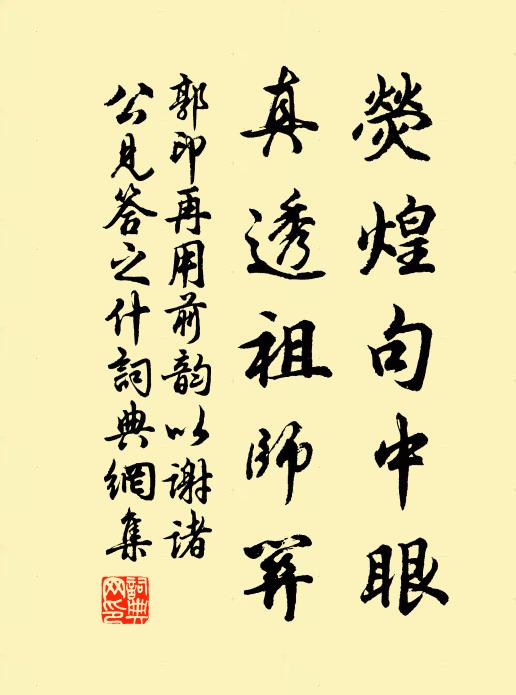 熒煌句中眼
真透祖師關
郭印再用前韵以謝諸
公見答之什詞典網集
詞典
网印